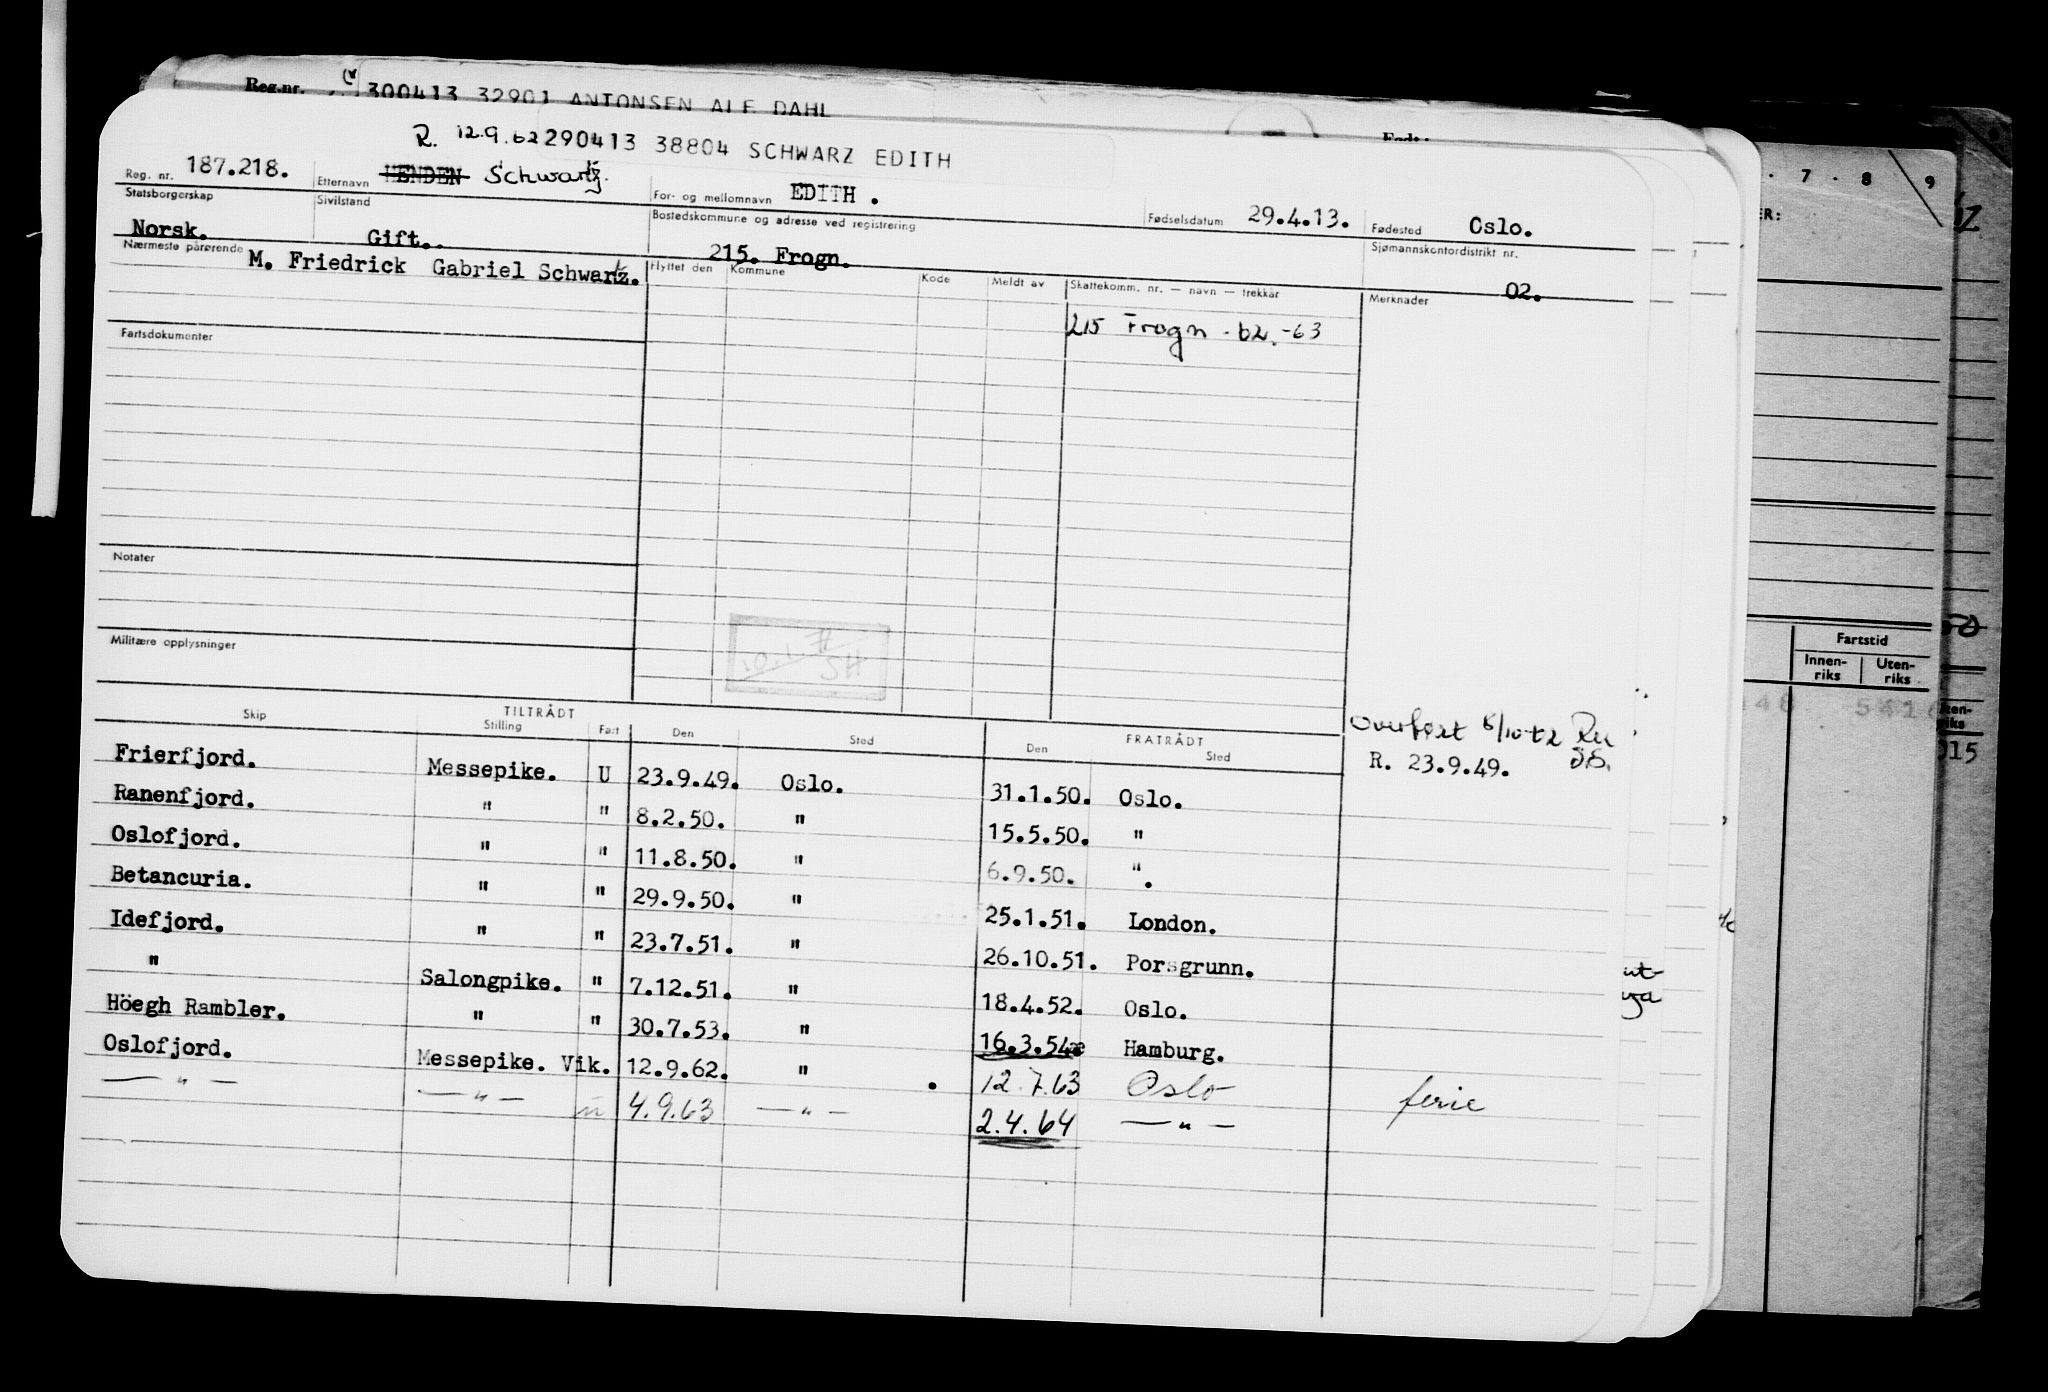 Reg.nr. 300413 32901 ANTONSEN ALF DAHL
Født:
R. 12.9.62 290413 38804 SCHWARZ EDITH
Reg. nr. 187.218. Etternavn HENDEN Schwartz. For- og mellomnavn EDITH . Fødselsdatum 29.4.13. Fødested Oslo.
Statsborgerskap Sivilstand Bostedskommune og adresse ved registrering Sjømannskontordistrikt nr.
Norsk. Gift.. 215. Frogn. 02.
Nærmeste pårørende M. Friedrick Gabriel Schwartz. Flyttet den Kommune Kode Meldt av Skattekomm. nr. — navn — trekkår Merknader
215 Frogn . 62. -63
Fartsdokumenter
Notater
Militære opplysninger
10.1. SH
Overført 8/10-62
R. 23.9.49.
TILTRÅDT FRATRÅDT
Skip Stilling Fart Den Sted Den Sted
Frierfjord. Messepike. U 23.9.49. Oslo. 31.1.50. Oslo.
Ranenfjord. " " 8.2.50. " 15.5.50. "
Oslofjord. " " 11.8.50. " 6.9.50. ".
Betancuria. " " 29.9.50. " 25.1.51. London.
Idefjord. " " 23.7.51. " 26.10.51. Porsgrunn.
" Salongpike. " 7.12.51. " 18.4.52. Oslo.
Höegh Rambler. " " 30.7.53. " 16.3.54. Hamburg.
Oslofjord. Messepike. Vik. 12.9.62. " . 12.7.63 Oslo ferie
— " — — " — u 4.9.63 — " — 2.4.64 — " —
· 7 · 8 9
ER:
Fartstid
Innen-riks Uten-riks
148 541
Uten-riks
015